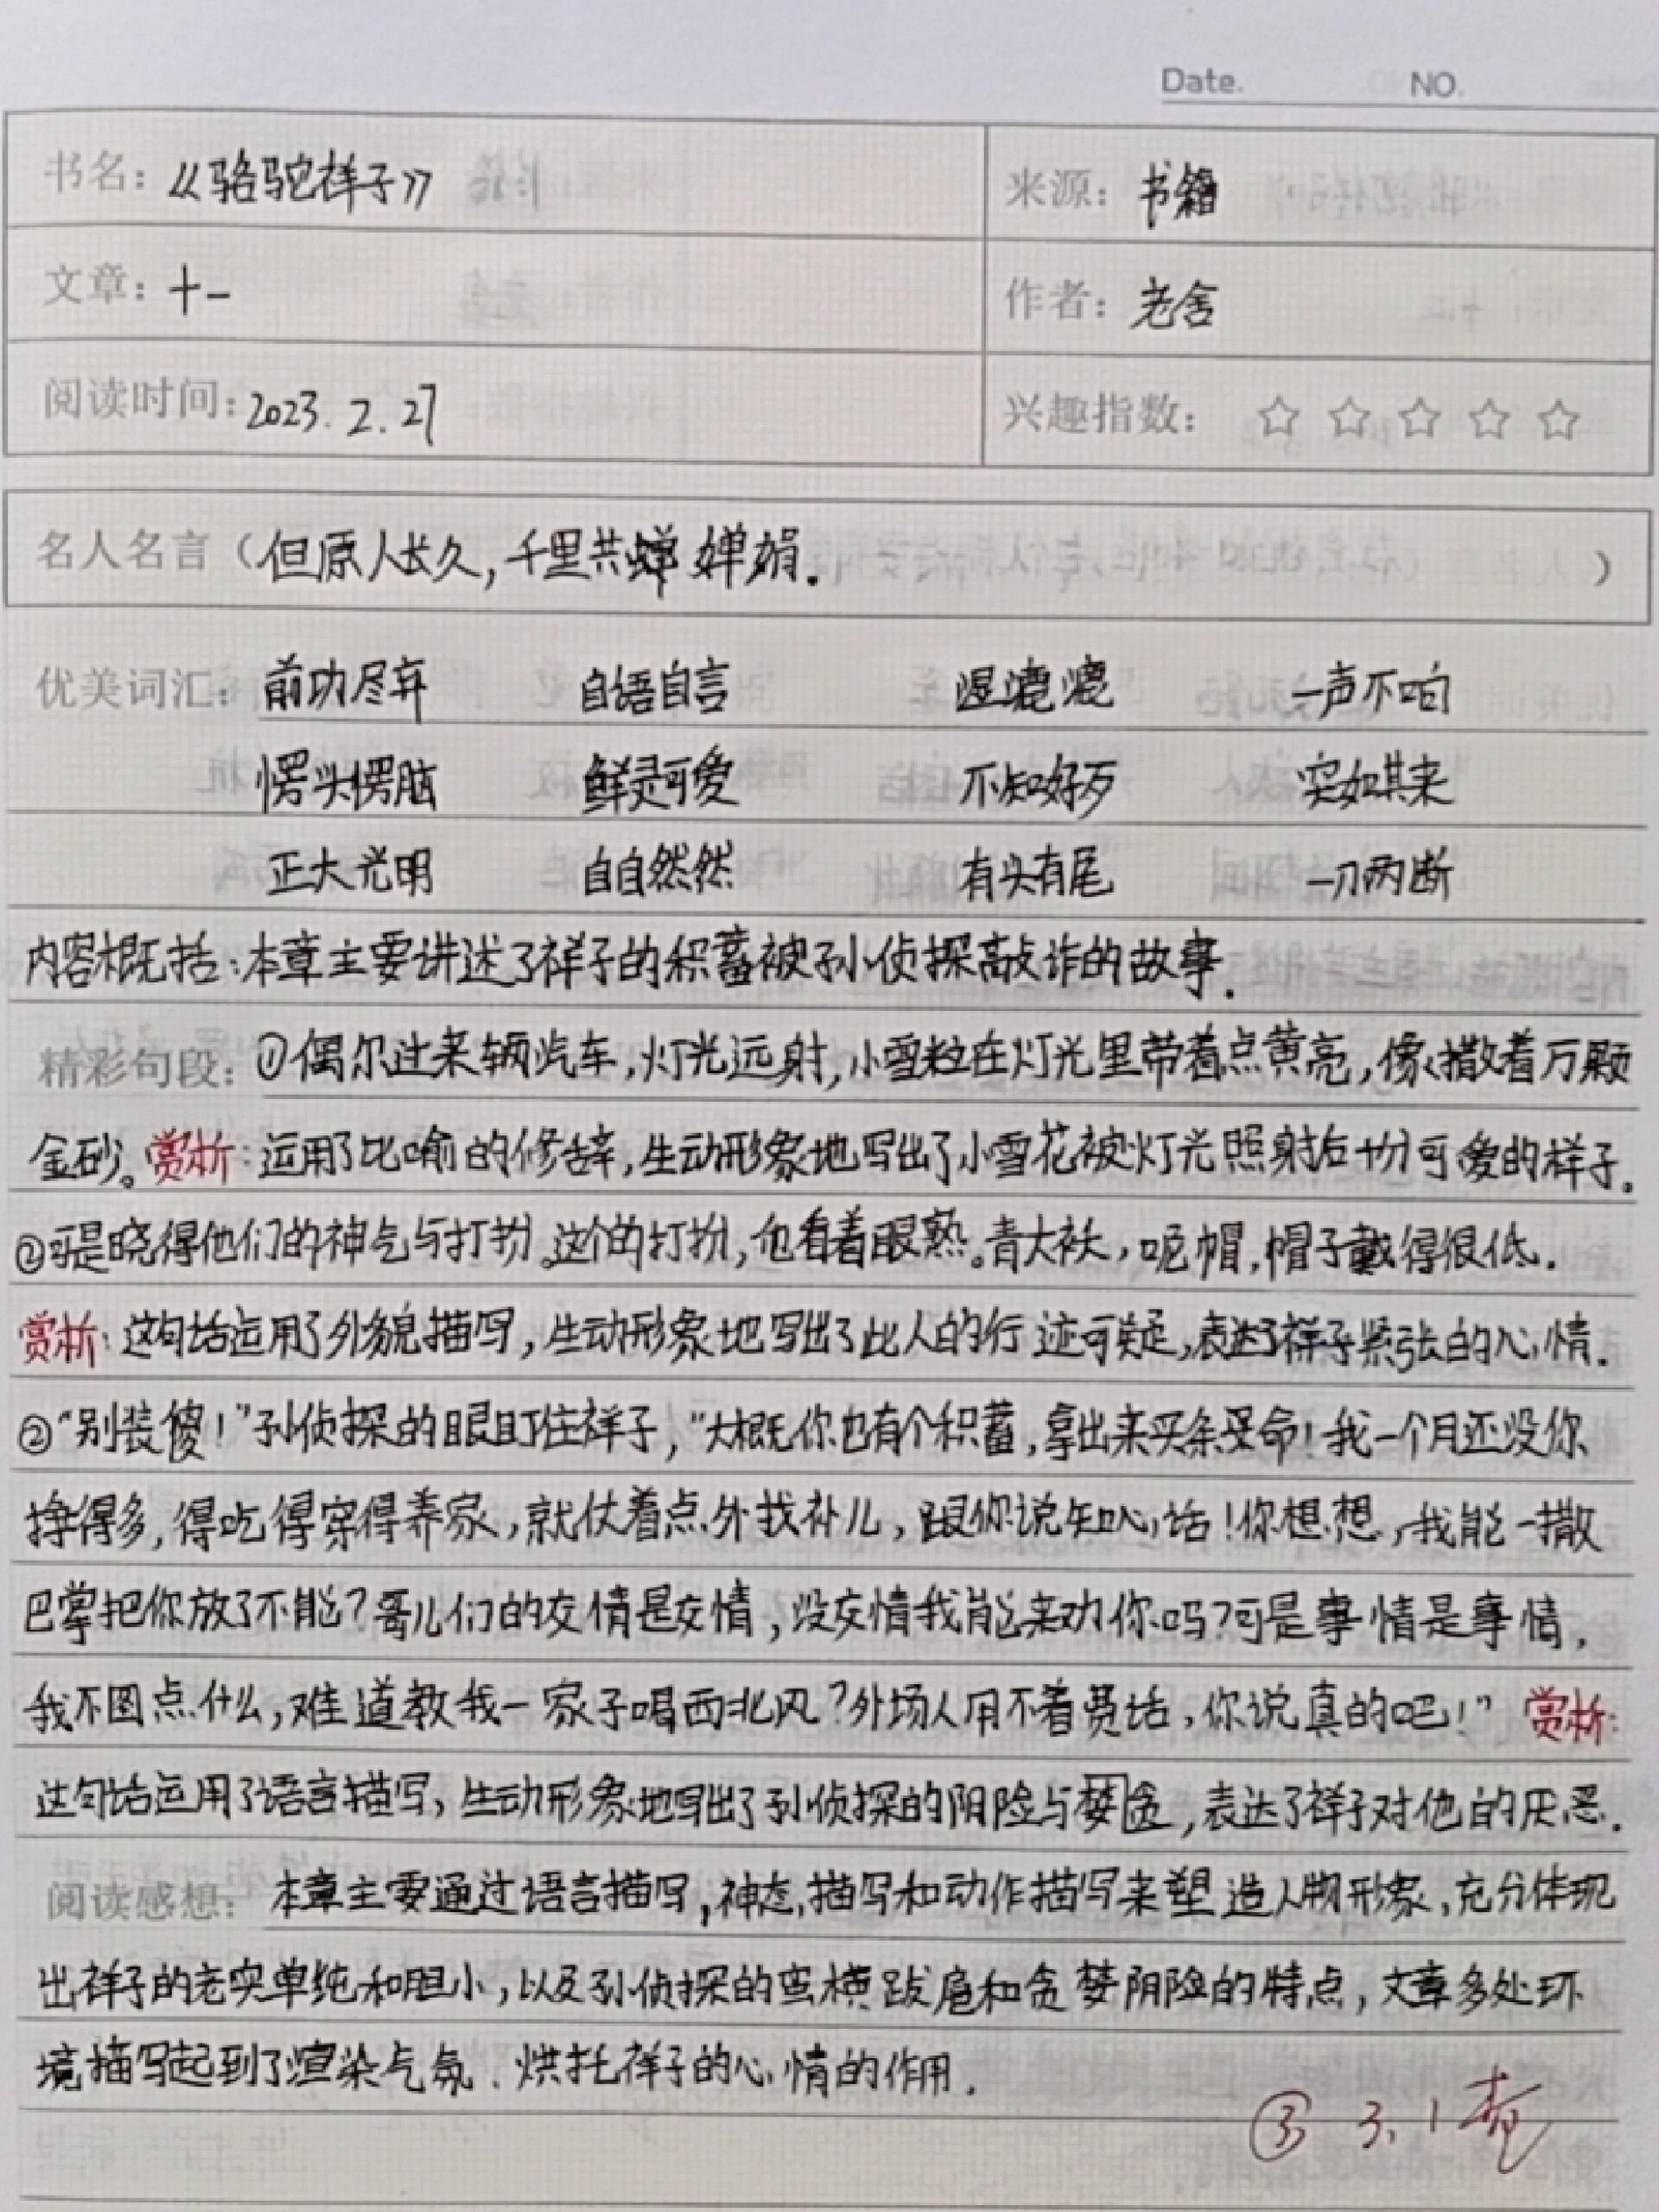 Date. NO.
书名：《骆驼祥子》 来源：书籍
文章：十一 作者：老舍
阅读时间：2023.2.27 兴趣指数：☆☆☆☆☆
名人名言（但原人长久，千里共婵娟。）
优美词汇：前功尽弃 自语自言 湿漉漉 一声不响
愣头愣脑 鲜灵可爱 不知好歹 突如其来
正大光明 自自然然 有头有尾 一刀两断
内容概括：本章主要讲述了祥子的积蓄被孙侦探敲诈的故事.
精彩句段：①偶尔过来辆汽车，灯光远射，小雪粒在灯光里带着点黄亮，像撒着万颗
金砂。赏析：运用了比喻的修辞，生动形象地写出了小雪花被灯光照射后十分可爱的样子。
②可是晓得他们的神气与打扮。这个的打扮，他看着眼熟。青大袄，呢帽，帽子戴得很低.
赏析：这句话运用了外貌描写，生动形象地写出了此人的行迹可疑，表达了祥子紧张的心情.
②“别装傻！”孙侦探的眼盯住祥子，“大概你也有个积蓄，拿出来买条命！我一个月还没你
挣得多，得吃得穿得养家，就仗着点外找补儿，跟你说知心话！你想想，我能一撒
巴掌把你放了不能？哥儿们的交情是交情，没交情我能来劝你吗？可是事情是事情，
我不图点什么，难道教我一家子喝西北风？外场人用不着费话，你说真的吧！”赏析：
这句话运用了语言描写，生动形象地写出了孙侦探的阴险与婪贪，表达了祥子对他的厌恶.
阅读感想：本章主要通过语言描写，神态描写和动作描写来塑造人物形象，充分体现
出祥子的老实单纯和胆小，以及孙侦探的蛮横跋扈和贪婪阴险的特点，文章多处环
境描写起到了渲染气氛.烘托祥子的心情的作用.
③ 3.1